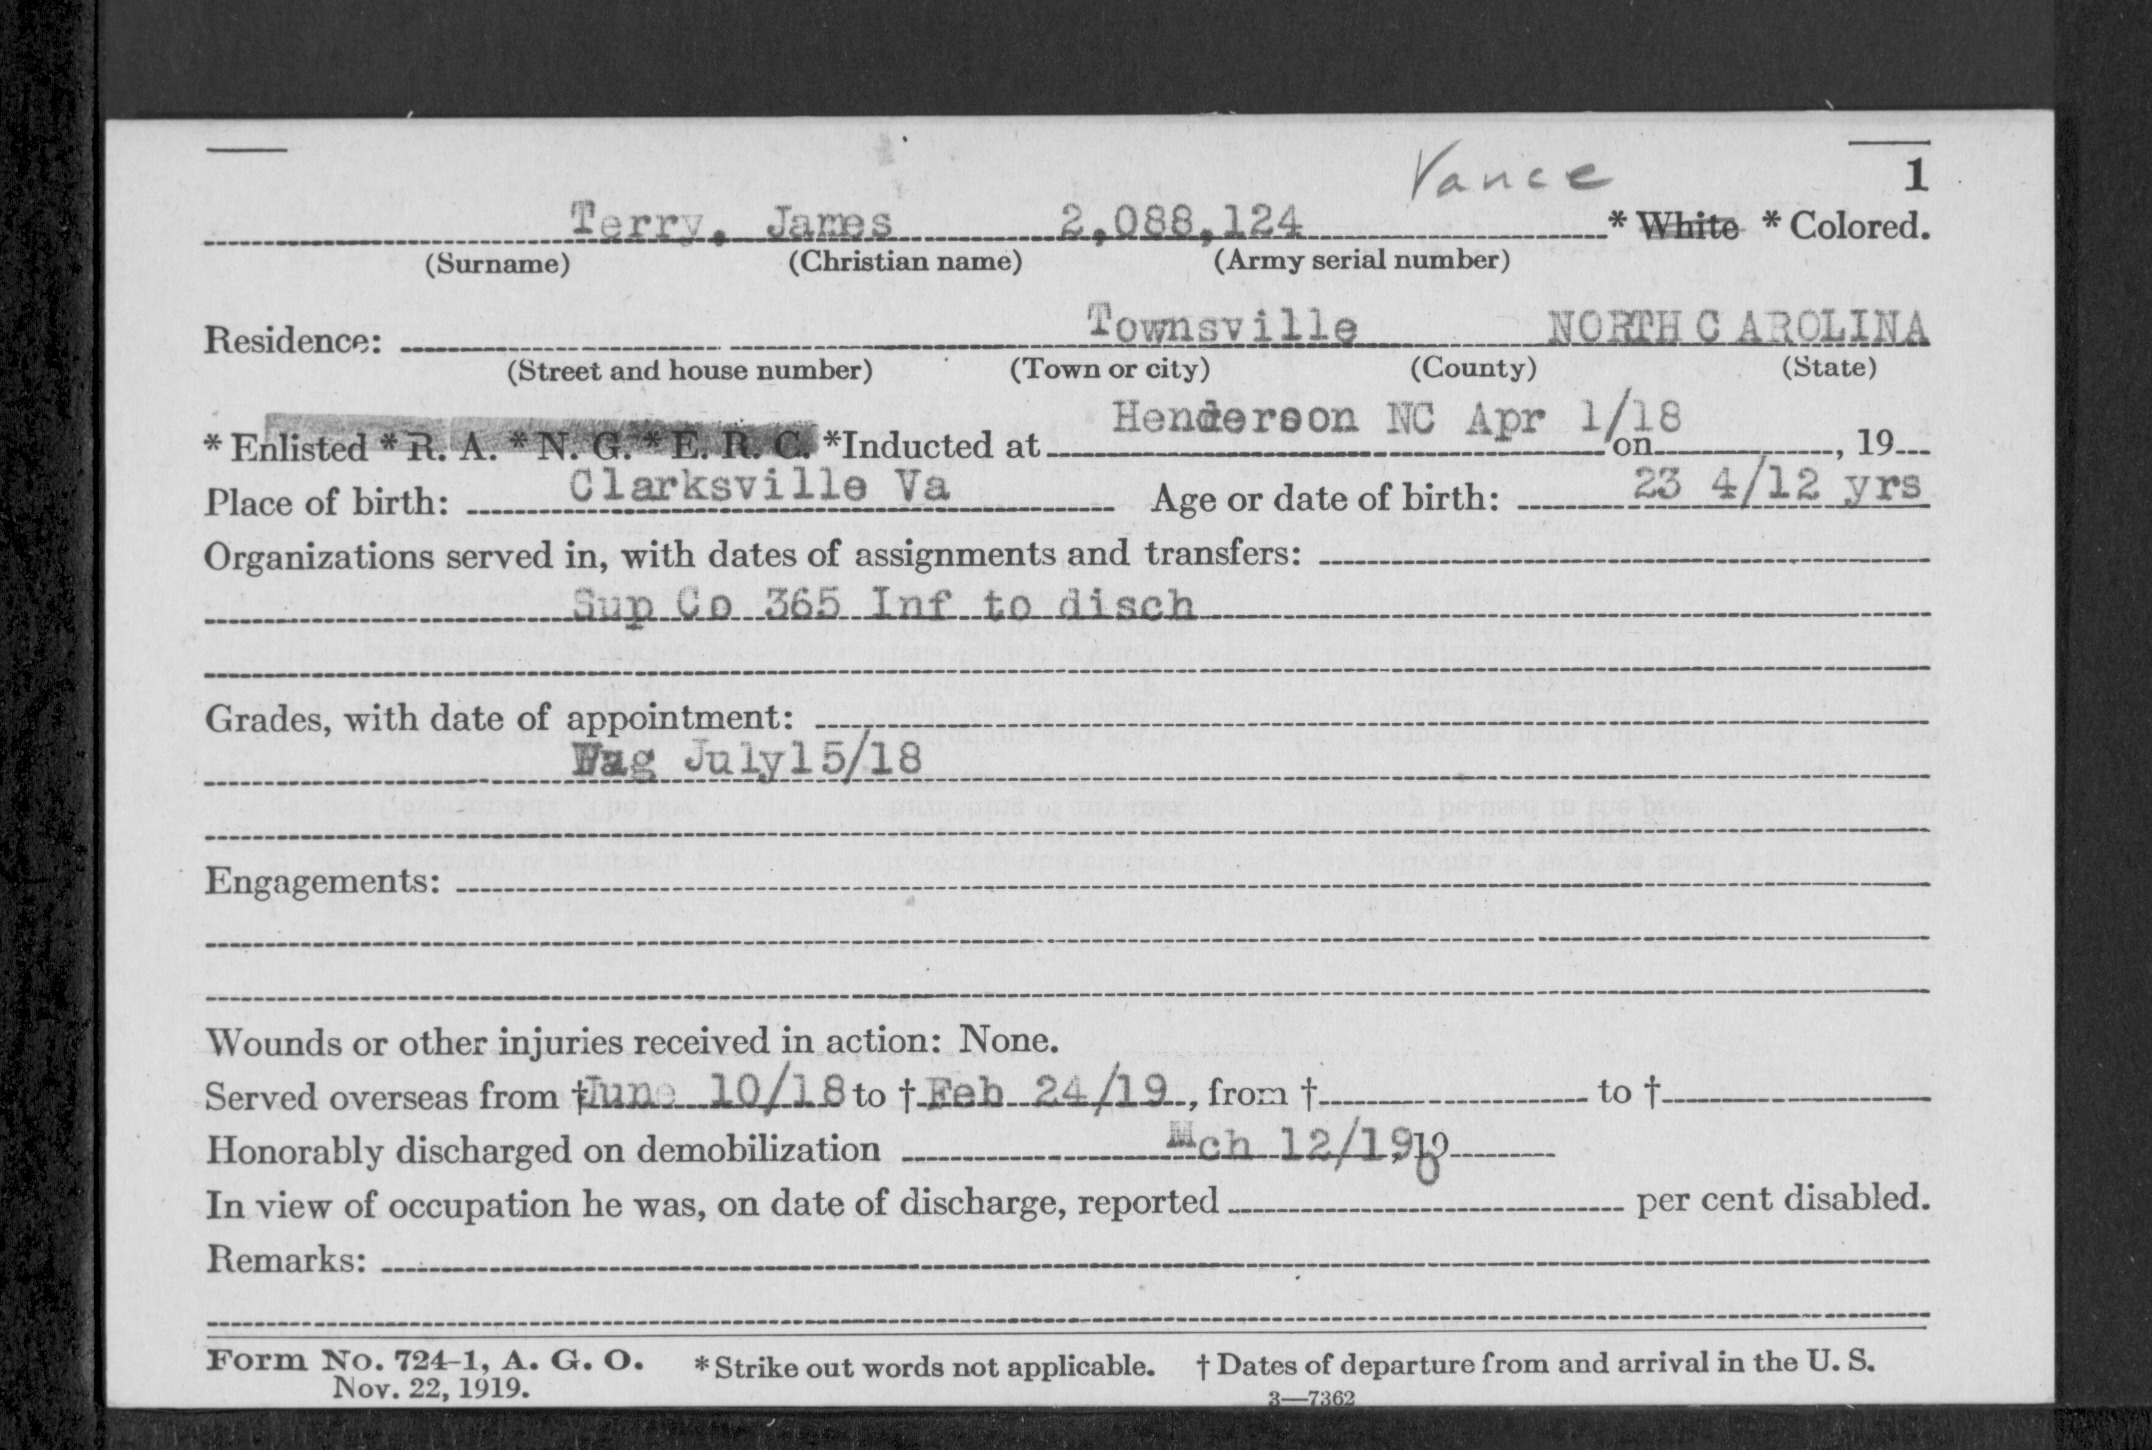 Vance 1
Terry, James 2,088,124 * White * Colored.
(Surname) (Christian name) (Army serial number)
Residence: Townsville NORTH CAROLINA
(Street and house number) (Town or city) (County) (State)
Henderson NC Apr 1/18
* Enlisted * R. A. * N. G. * E. R. C. *Inducted at on , 19
Place of birth: Clarksville Va Age or date of birth: 23 4/12 yrs
Organizations served in, with dates of assignments and transfers:
Sup Co 365 Inf to disch
Grades, with date of appointment:
Wag July15/18
Engagements:
Wounds or other injuries received in action: None.
Served overseas from † June 10/18 to † Feb 24/19, from † to †
Honorably discharged on demobilization Mch 12/19, 19
In view of occupation he was, on date of discharge, reported per cent disabled.
Remarks:
Form No. 724-1, A. G. O. * Strike out words not applicable. † Dates of departure from and arrival in the U. S.
Nov. 22, 1919. 3—7362